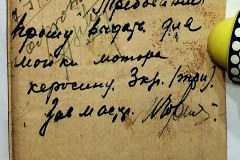 Требование
Прошу выдать для
мойки мотора
керосину 3 кг. (три).
Зав маст.